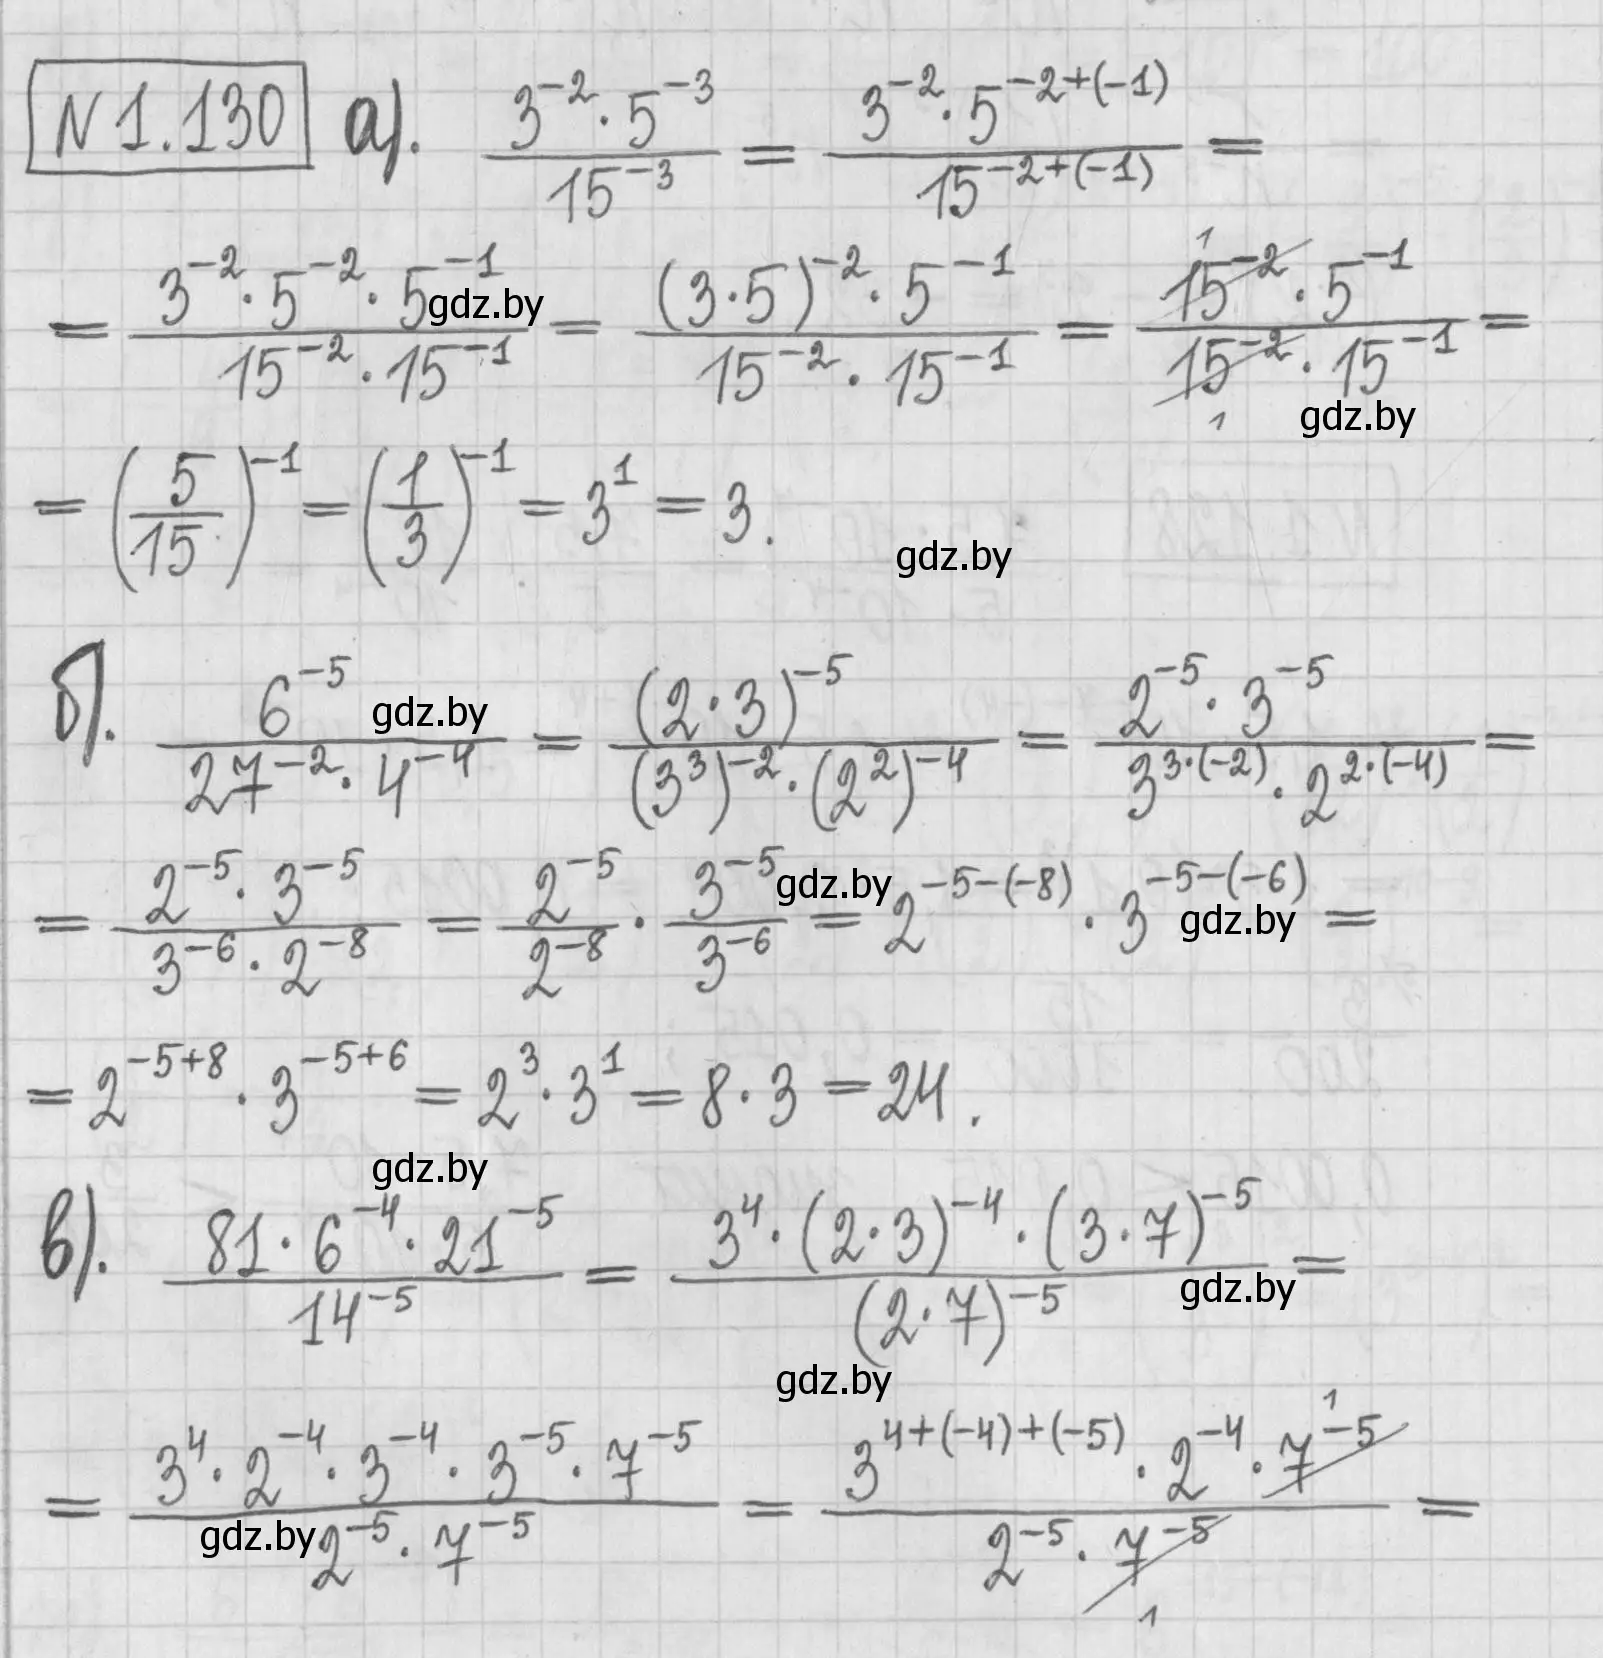 N1.130 а). \frac{3^{-2} \cdot 5^{-3}}{15^{-3}} = \frac{3^{-2} \cdot 5^{-2+(-1)}}{15^{-2+(-1)}} =
= \frac{3^{-2} \cdot 5^{-2} \cdot 5^{-1}}{15^{-2} \cdot 15^{-1}} = \frac{(3 \cdot 5)^{-2} \cdot 5^{-1}}{15^{-2} \cdot 15^{-1}} = \frac{\cancel{15^{-2}}^{1} \cdot 5^{-1}}{\cancel{15^{-2}}_{1} \cdot 15^{-1}} =
gdz.by
gdz.by
= \left(\frac{5}{15}\right)^{-1} = \left(\frac{1}{3}\right)^{-1} = 3^{1} = 3.
gdz.by
б). \frac{6^{-5}}{27^{-2} \cdot 4^{-4}} = \frac{(2 \cdot 3)^{-5}}{(3^{3})^{-2} \cdot (2^{2})^{-4}} = \frac{2^{-5} \cdot 3^{-5}}{3^{3 \cdot (-2)} \cdot 2^{2 \cdot (-4)}} =
gdz.by
= \frac{2^{-5} \cdot 3^{-5}}{3^{-6} \cdot 2^{-8}} = \frac{2^{-5}}{2^{-8}} \cdot \frac{3^{-5}}{3^{-6}} = 2^{-5-(-8)} \cdot 3^{-5-(-6)} =
gdz.by
gdz.by
= 2^{-5+8} \cdot 3^{-5+6} = 2^{3} \cdot 3^{1} = 8 \cdot 3 = 24.
gdz.by
в). \frac{81 \cdot 6^{-4} \cdot 21^{-5}}{14^{-5}} = \frac{3^{4} \cdot (2 \cdot 3)^{-4} \cdot (3 \cdot 7)^{-5}}{(2 \cdot 7)^{-5}} =
gdz.by
gdz.by
= \frac{3^{4} \cdot 2^{-4} \cdot 3^{-4} \cdot 3^{-5} \cdot 7^{-5}}{2^{-5} \cdot 7^{-5}} = \frac{3^{4+(-4)+(-5)} \cdot 2^{-4} \cdot \cancel{7^{-5}}^{1}}{2^{-5} \cdot \cancel{7^{-5}}_{1}} =
gdz.by